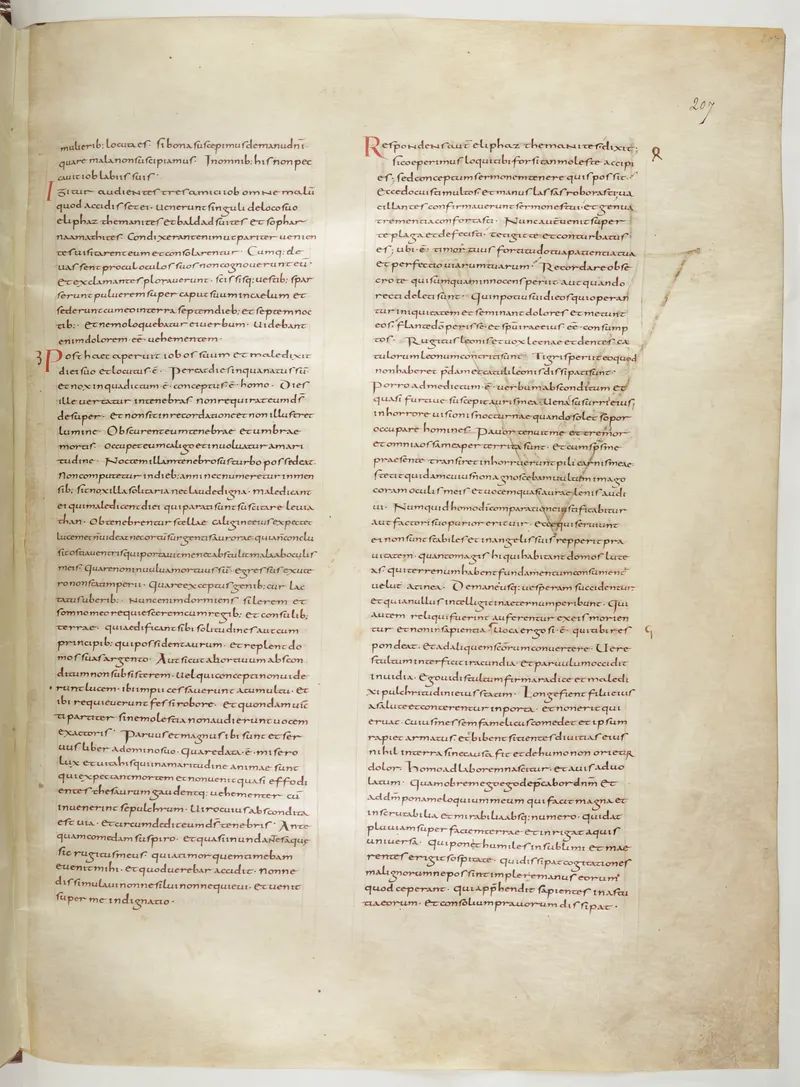 207
mulierib; locuta es. si bona suscepimus demanu dni
quare mala non suscipiamus. In omnib; his non pec
cavit iob labiis suis.
Igitur audientes tres amici iob omne malū
quod accidisset ei. Venerunt singuli de loco suo
eliphaz themanites et baldad suites et sophar
naamathites. Condixerant enim ut pariter venien
tes visitarent eum et consolarentur. Cumq; ele
vassent procul oculos suos non cognoverunt eū.
Et exclamantes ploraverunt. scissisq; vestib; spar
serunt pulverem super caput suum in caelum et
sederunt cum eo in terra septem dieb; et septem noc
tib;. et nemo loquebatur ei verbum. Videbant
enim dolorem eē vehementem.
3 Post haec aperuit iob os suum et maledixit
diei suo et locutus ē. Pereat dies in qua natus sū
et nox in qua dictum ē. conceptus ē homo. Dies
ille vertatur in tenebras non requirat eum ds
desuper. et non sit in recordatione et non illustret
lumine. Obscurent eum tenebrae et umbrae
mortis. occupet eum caligo et involvatur amari
tudine. Noctem illam tenebrosus turbo possideat.
Non computetur in dieb; anni nec numeretur in men
sib; sit nox illa solitaria nec laude digna. maledicant
ei qui maledicent diei qui parati sunt suscitare levia
than. Obtenebrentur stellae caligine eius expectet
lucem et n videat nec ortū surgentis aurorae. quia n conclu
sit ostia ventris qui portavit me nec abstulit mala ab oculis
meis. Quare non in vulva mortuus sū. egressus ex ute
ro non statim perii. Quare exceptus genib; cur lac
tatus uberib;. Nunc enim dormiens silerem et
somno meo requiescerem cum regib; et consulib;
terrae. qui aedificant sibi solitudines aut cum
principib; qui possident aurum. et replent do
mos suas argento. Aut sicut abortivum abscon
ditum non subsisterem. Vel qui concepti non vide
runt lucem. ibi impii cessaverunt a tumultu. et
ibi requieverunt fessi robore. et quondam vic
ti pariter sine molestia non audierunt vocem
exactoris. Parvus et magnus ibi sunt et ser
vus liber a domino suo. Quare data ē. misero
lux et vita his qui in amaritudine animae sunt
qui expectant mortem et non venit quasi effodi
entes thesaurum gaudentq; vehementer cū
invenerint sepulchrum. Viro cuius abscondita
est via. et circumdedit eum ds tenebris. Ante
quam comedam suspiro. et quasi inundantes aquae
sic rugitus meus quia timor quem timebam
evenit mihi. et quod verebar accidit. nonne
dissimulavi nonne silui nonne quievi. et venit
super me indignatio.
Respondens aūt eliphaz themanites dixit;
si coeperimus loqui tibi forsitan moleste accipi
es; sed conceptum sermonem tenere quis possit.
Ecce docuisti multos et manus lassas roborasti va
cillantes confirmaverunt sermones tui. et genua
trementia confortasti. Nunc aūt venit super
te plaga et defecisti. tetigit te et conturbatus
es; ubi ē. timor tuus fortitudo tua patientia tua
et perfectio viarum tuarum. Recordare obse
cro te quis umquam innocens periit aut quando
recti deleti sunt. Quin potius vidi eos qui operan
tur iniquitatem et seminant dolores et metunt
eos. flante dō perisse. et spū irae eius eē consump
tos. Rugitus leonis et vox leenae et dentes ca
tulorum leonum contriti sunt. Tigris periit eo quod
non haberet p̄dam et catuli leonis dissipati sunt.
Porro ad me dictum ē. verbum absconditum et
quasi furtive suscepit auris mea venas susurri eius;
in horrore visionis nocturnae quando solet sopor
occupare homines. Pavor tenuit me et tremor
et omnia ossa mea perterrita sunt. et cum sps me
praesente transiret inhorruerunt pili carnis meae.
stetit quidam cuius non agnoscebam vultum imago
coram oculis meis et vocem quasi aurae lenis audi
vi. Numquid homo di comparatione iustificabitur
aut factore suo purior erit vir. ecce qui serviunt
ei non sunt stabiles et in angelis suis repperit pra
vitatem. quanto magis hi qui habitant domos lute
as. qui terrenum habent fundamentum consument
velut a tinea. De mane usq; vesperam succidentur
et quia nullus intellegit in aeternum peribunt. Qui
autem reliqui fuerint auferentur ex eis morien
tur et non in sapientia. Voca ergo si ē. qui tibi res
pondeat. et ad aliquem scōrum convertere. Vere
stultum interficit iracundia et parvulum occidit
invidia. ego vidi stultum firma radice et maledi
xi pulchritudini eius statim. Longe fient filii eius
a salute et conterentur in porta. et non erit qui
eruat. Cuius messem famelicus comedet et ipsum
rapiet armatus et bibent sitientes divitias eius
nihil in terra sine causa fit et de humo non orietur
dolor. homo ad laborem nascitur. et avis ad vo
latum. Quam ob rem ego deprecabor dnm et
ad dm ponam eloquium meum qui facit magna et
inscrutabilia et mirabilia absq; numero. qui dat
pluviam super faciem terrae. et inrigat aquis
universa. Qui ponet humiles in sublimi et mae
rentes erigit sospitate. qui dissipat cogitationes
malignorum ne possint implere manus eorum
quod ceperant. qui app̄hendit sapientes in astu
tia eorum. et consilium pravorum dissipat.